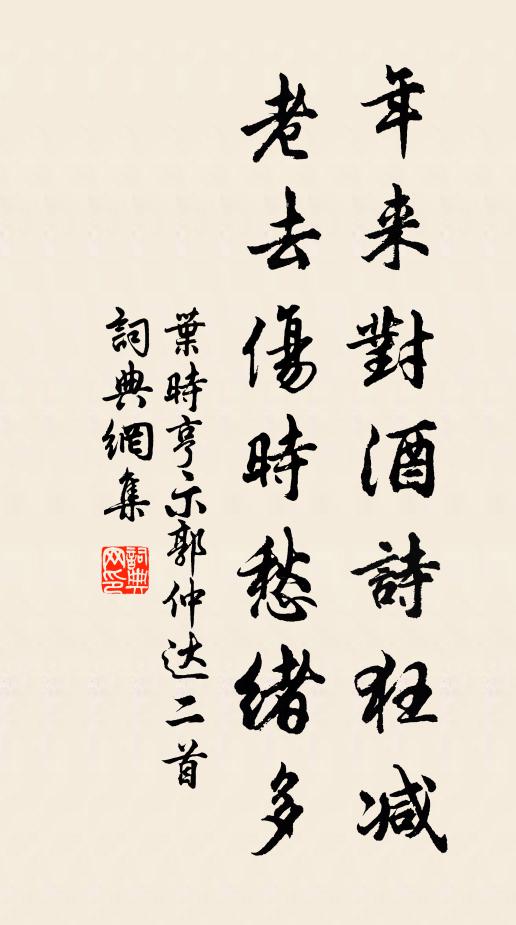 年来對酒詩狂减
老去傷時愁緒多
葉時亨示郭仲达二首
詞典網集
詞典网印